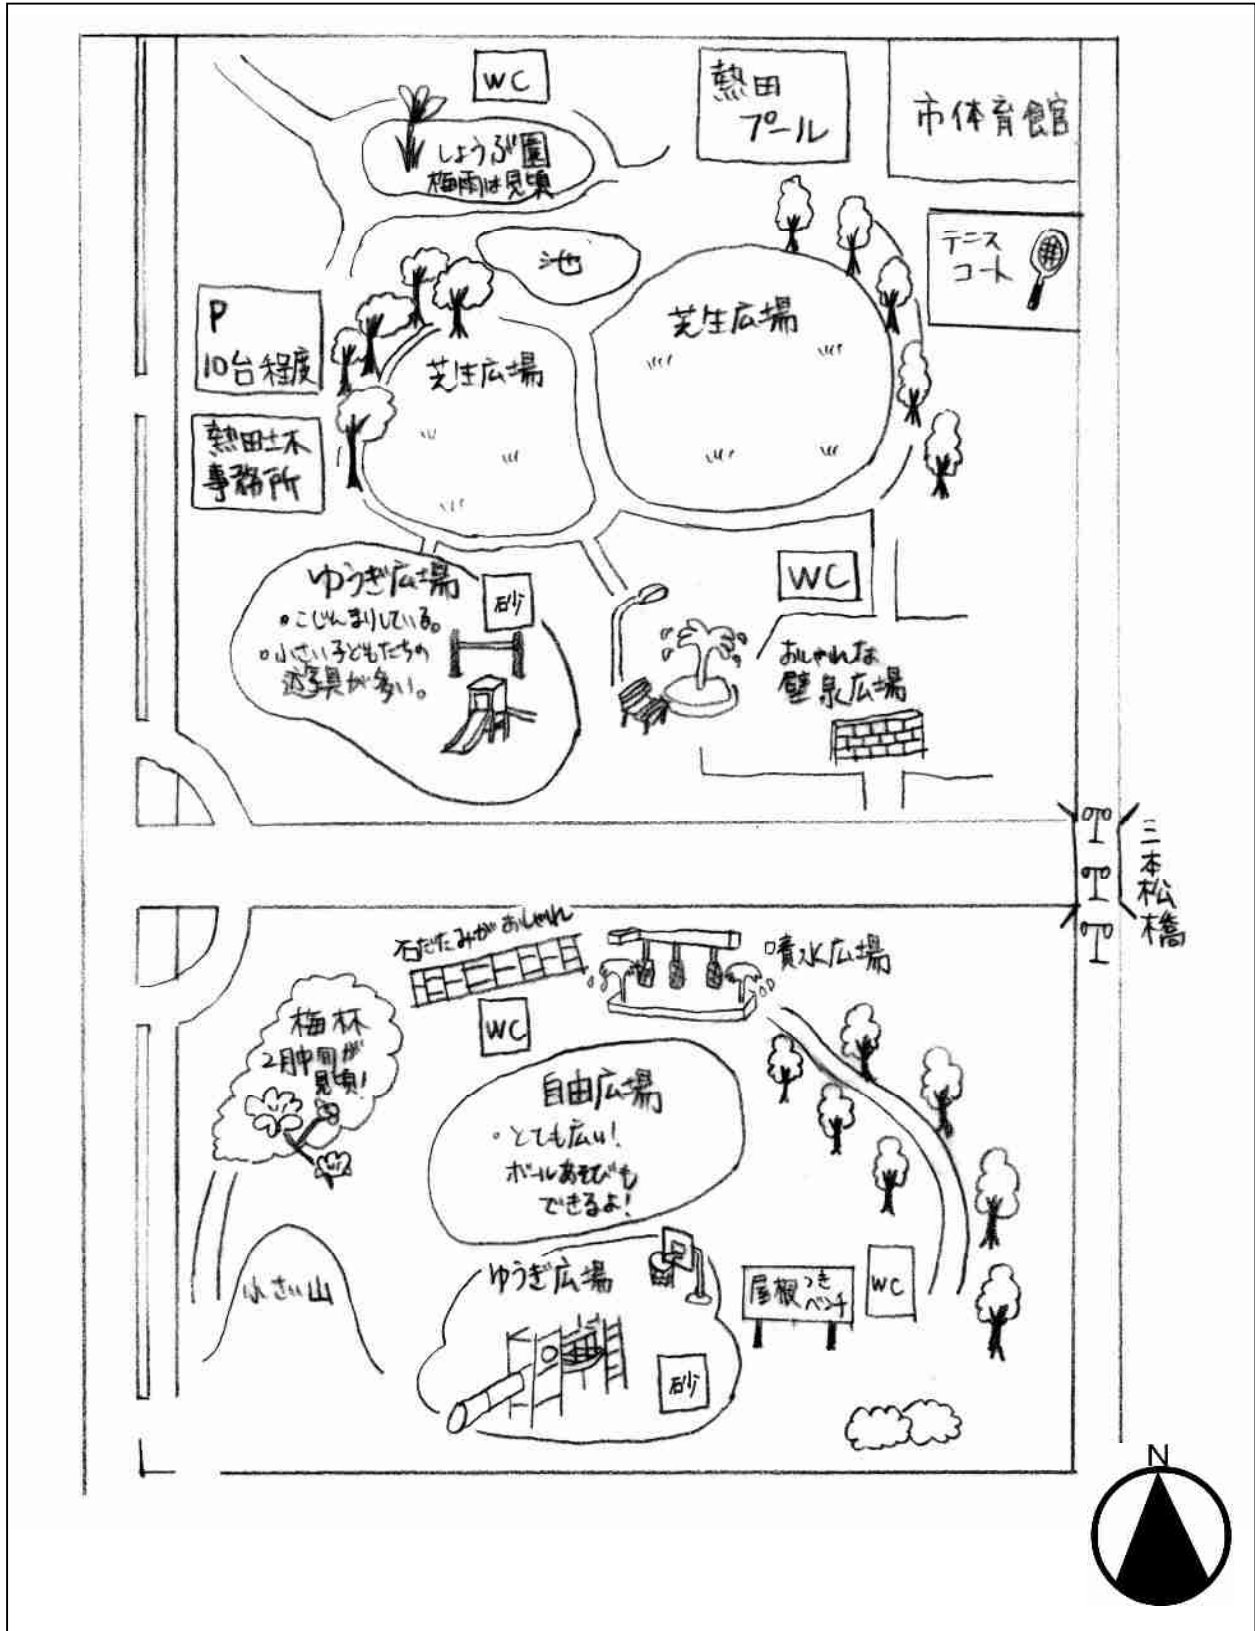 WC
熱田
プール
市体育館
しょうぶ園
梅雨は見頃
テニス
コート
池
P
10台程度
芝生広場
芝生広場
熱田土木
事務所
ゆうぎ広場
・こじんまりしている。
・小さい子どもたちの
遊具が多い。
砂
WC
おしゃれな
壁泉広場
三本松橋
石だたみがおしゃれ
噴水広場
WC
梅林
2月中旬が
見頃!
自由広場
・とても広い!
ボールあそびも
できるよ!
小さい山
ゆうぎ広場
砂
屋根つき
ベンチ
WC
N